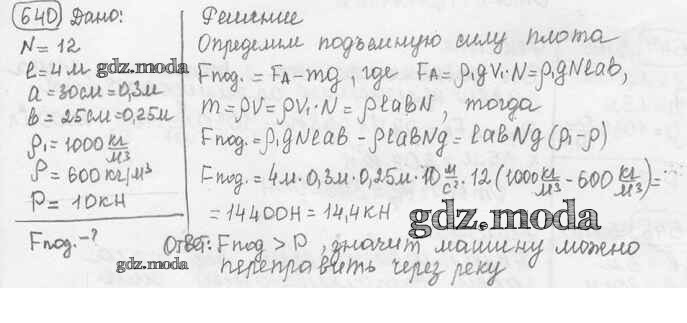 640 Дано:
N = 12
ℓ = 4 м
a = 30 см = 0,3 м
в = 25 см = 0,25 м
ρ₁ = 1000 кг/м³
ρ = 600 кг/м³
P = 10 кН
Fпод. - ?
Решение
Определим подъемную силу плота
Fпод. = FA - mg, где FA = ρ₁gV₁·N = ρ₁gNℓaв,
m = ρV = ρV₁·N = ρℓaвN, тогда
Fпод. = ρ₁gNℓaв - ρℓaвNg = ℓaвNg(ρ₁-ρ)
Fпод. = 4м·0,3м·0,25м·10 м/с²·12(1000 кг/м³ - 600 кг/м³) =
= 14400Н = 14,4кН
Ответ: Fпод > P, значит машину можно
переправить через реку
gdz.moda
gdz.moda
gdz.moda
gdz.moda